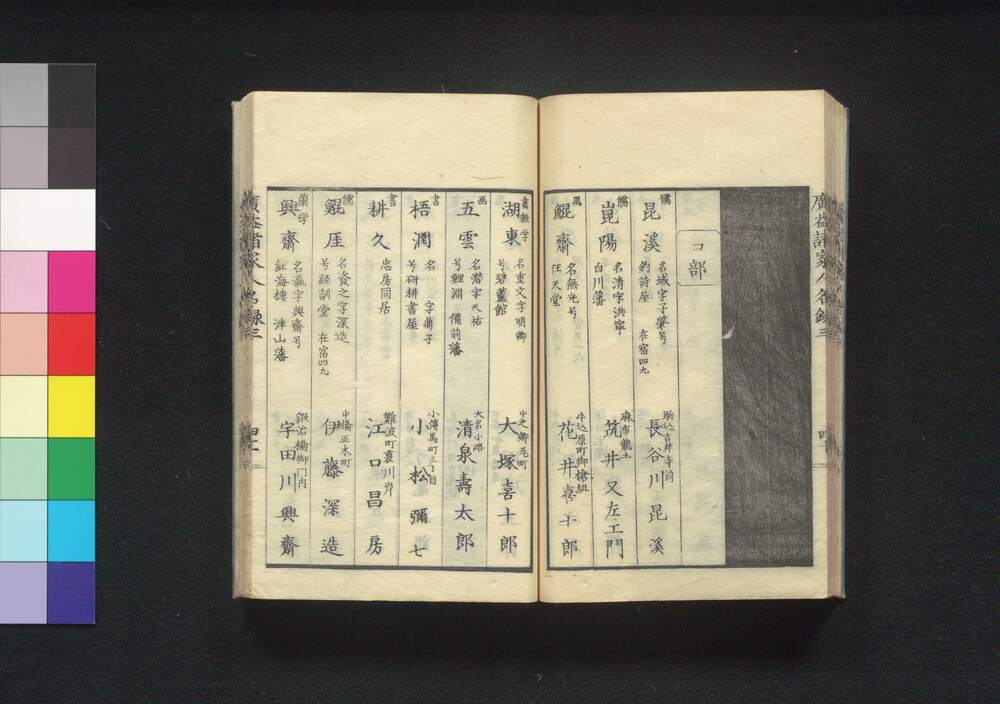 廣益諸家人名録三
コ部
儒
昆溪
名域字子肇号
豹詩屋 在宿四九
駒込吉祥寺前
長谷川昆溪
儒
崑陽
名清字洪寧
白川藩
麻布龍土
筑井又左エ門
画
鯤齋
名無光号
任天堂
牛込原町御槍組
花井喜十郎
湖東
名重文字明卿
号碧蘆館
中之郷瓦町
大塚喜十郎
画
五雲
名潜字天祐
号鯉淵 備前藩
大名小路
清泉壽太郎
書
梧澗
名 字蕭子
号研耕書屋
小傳馬町三丁目
小松彌七
書
耕久
忠房同居
難波町裏川岸
江口昌房
儒
鯤厓
名資之字深造
号経訓堂 在宿四九
中橋正木町
伊藤深造
蘭学
興齋
名瀛字興齋号
紅海樓 津山藩
鍛冶橋御門内
宇田川興齋
廣益諸家人名録三